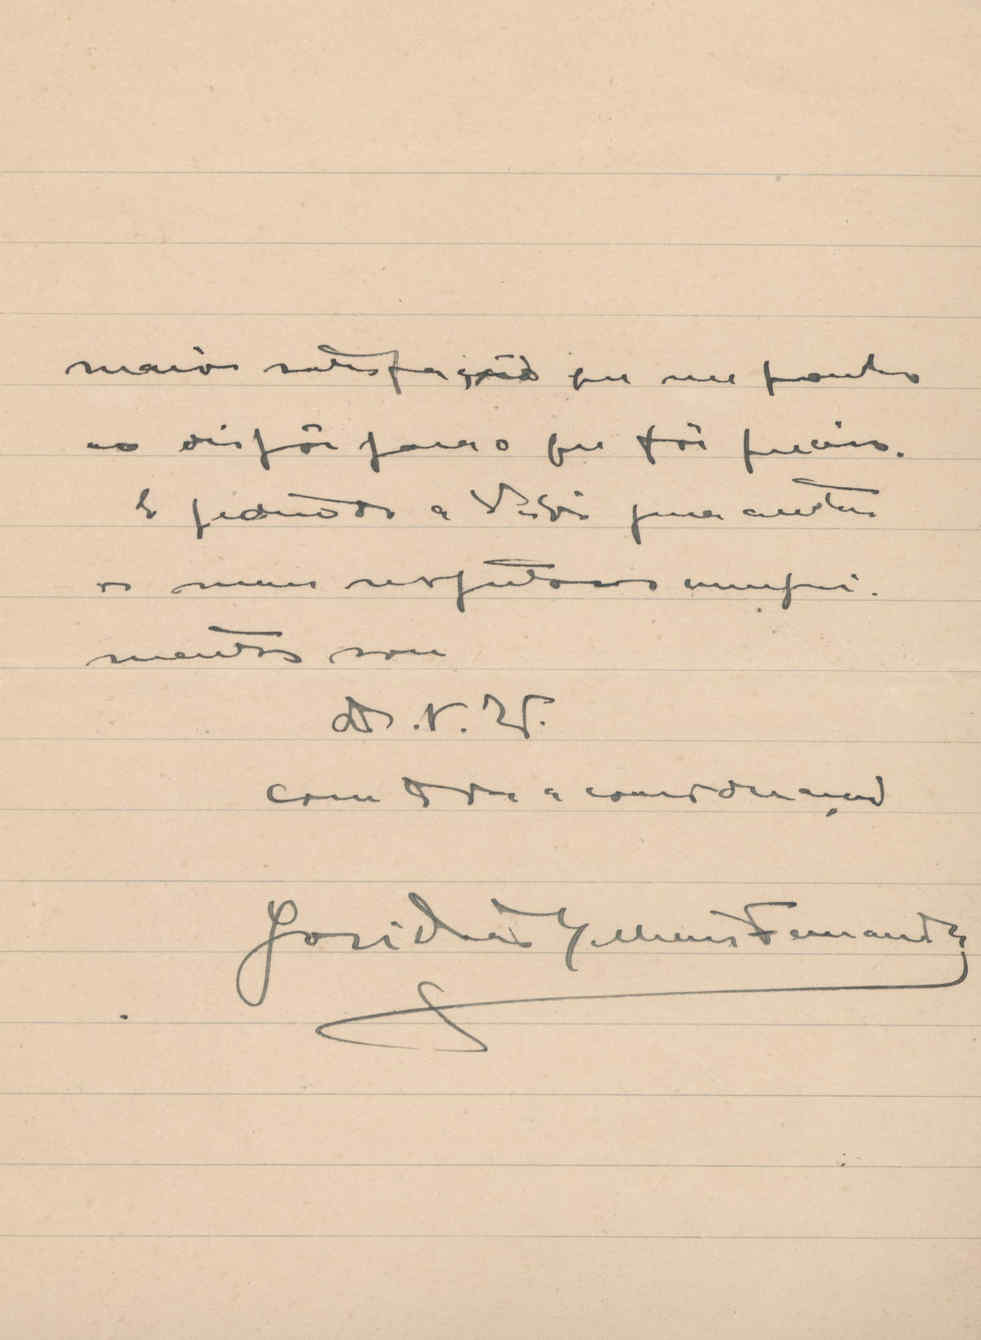 maior satisfação que me ponho
ao dispôr para o que fôr preciso.
E pedindo a V. Exª para aceitar
os meus respeitosos cumpri-
mentos sou
De V. Exª
com toda a consideração
José Dias Fernandes